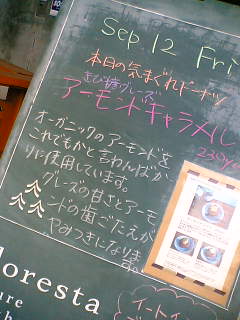 Sep.12 Fri
本日の気まぐれドーナツ
きび糖グレーズ
アーモンドキャラメル
オーガニックのアーモンドを
これでもかと言わんばか
りに使用しています。
グレーズの甘さとアーモ
ンドの歯ごたえが
やみつきになりま
す。
loresta
ure
イートイン